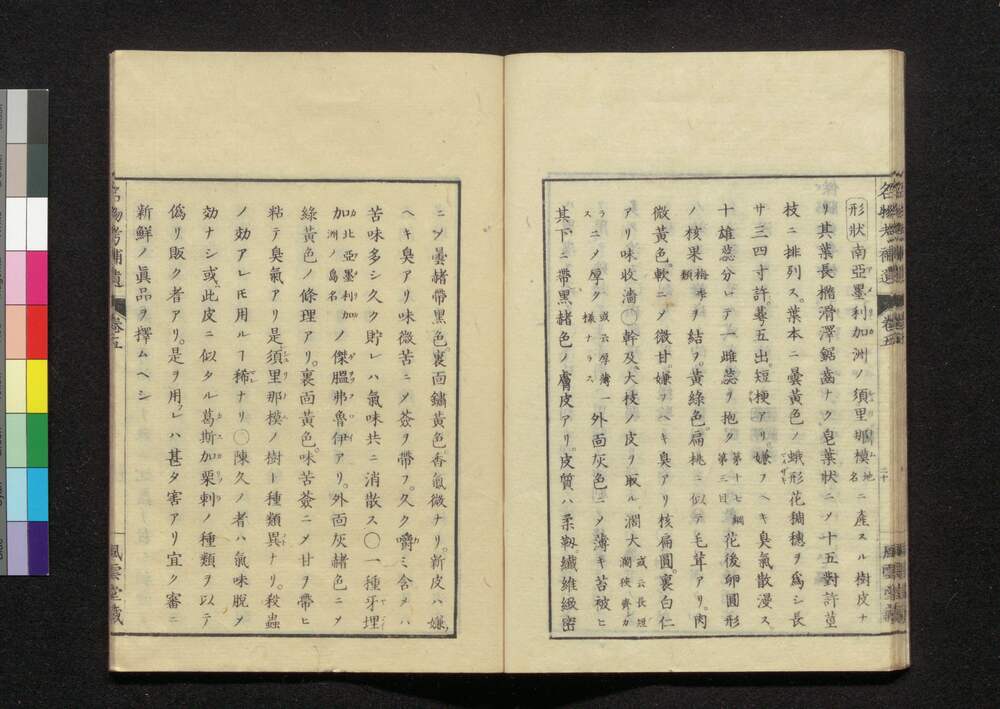 名物考補遺 卷五 二十 風雲堂藏
形狀 南亞墨利加洲ノ須里那模地名ニ產スル樹皮ナ
リ其葉長橢滑澤鋸齒ナク皂莢狀ニノ十五對許莖
枝ニ排列ス。葉本ニ曇黃色ノ蛾形花穗ヲ爲シ長
サ三四寸許。萼五出。短梗アリ。嫌フヘキ臭氣散漫ス。
十雄蕊分レテ一雌蕊ヲ抱ク第十七綱第三目花後卵圓形
ノ核果梅杏類ヲ結フ黃綠色。扁桃ニ似テ毛茸アリ。肉
微黃色。軟ニノ微甘。嫌フヘキ臭アリ核扁圓。裏白仁
アリ味收濇〇幹及大枝ノ皮ヲ取ル濶大或云長短濶狹齊カラス
ニノ厚ク或云厚薄一樣ナラス外面灰色ニノ薄キ苔被ヒ
其下ニ帶黑赭色ノ膚皮アリ。皮質ハ柔靱。纖維緻密
ニノ曇赭帶黑色。裏面鏽黃色。香氣微ナリ。新皮ハ嫌フ
ヘキ臭アリ味微苦ニノ薟ヲ帶フ。久ク嚼ミ含メハ
苦味多シ久ク貯レハ氣味共ニ消散ス〇一種牙埋
加北亞墨利加洲ノ島名ノ傑膃弗魯伊アリ。外面灰赭色ニノ
綠黃色ノ條理アリ。裏面黃色。味苦薟ニノ甘ヲ帶ヒ
粘テ臭氣アリ是須里那模ノ樹ト種類異ナリ。殺蟲
ノ効アレ𪜈用ルヿ稀ナリ〇陳久ノ者ハ氣味脫ノ
効ナシ或此皮ニ似タル葛斯加栗刺ノ種類ヲ以テ
僞リ販ク者アリ。是ヲ用レハ甚タ害アリ宜ク審ニ
新鮮ノ眞品ヲ擇ムヘシ
名物考補遺 卷五 風雲堂藏